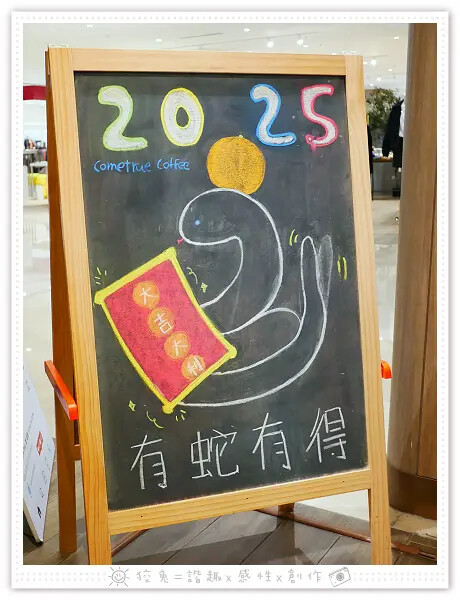 2025
cometrue coffee
大吉大利
有蛇有得
粒兔=諧趣x感性x創作